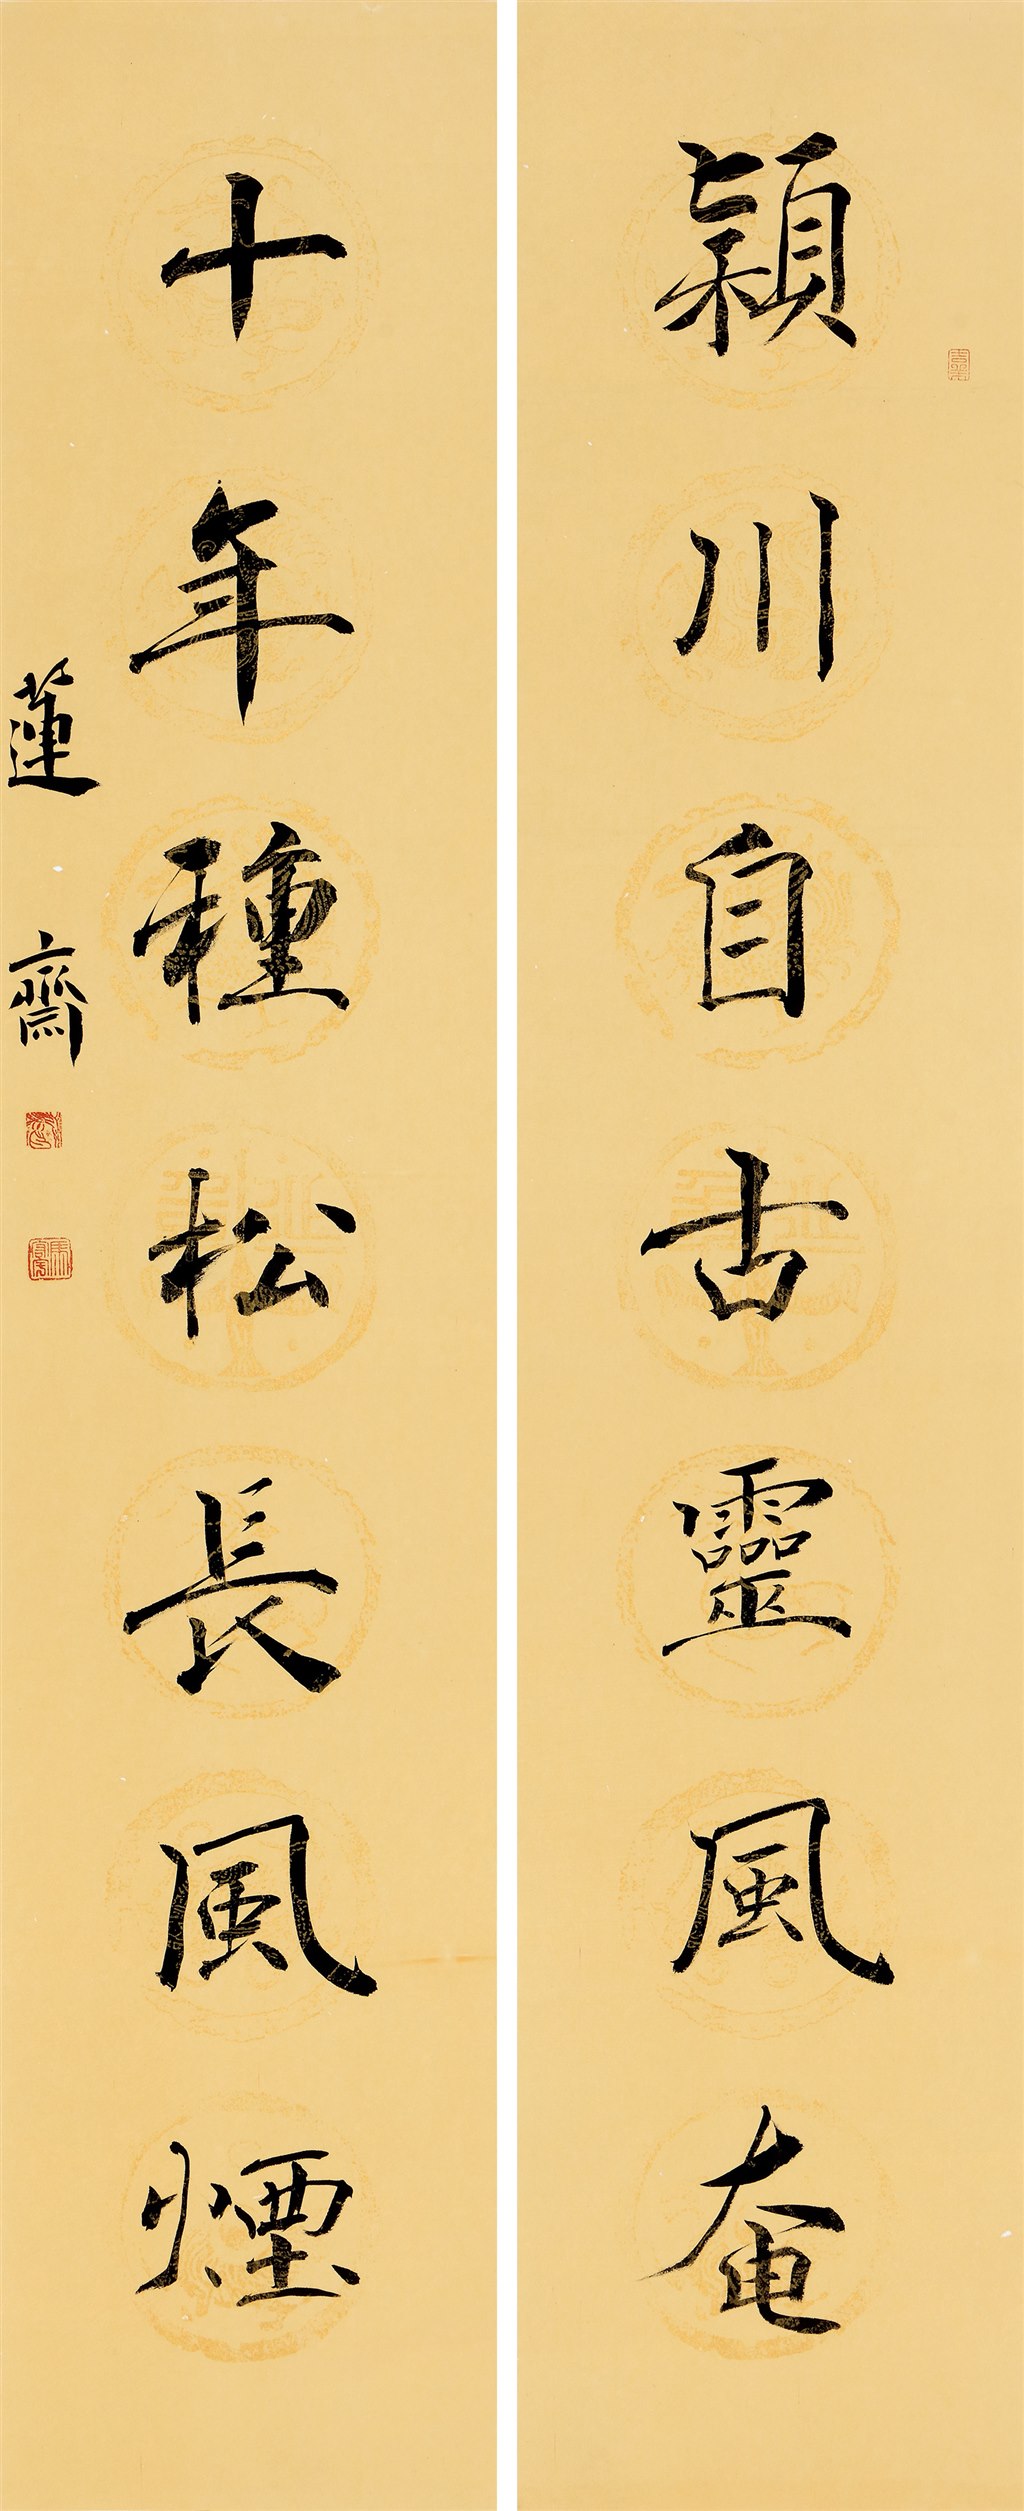 穎川自古靈風奄
十年種松長風煙
蓮齋